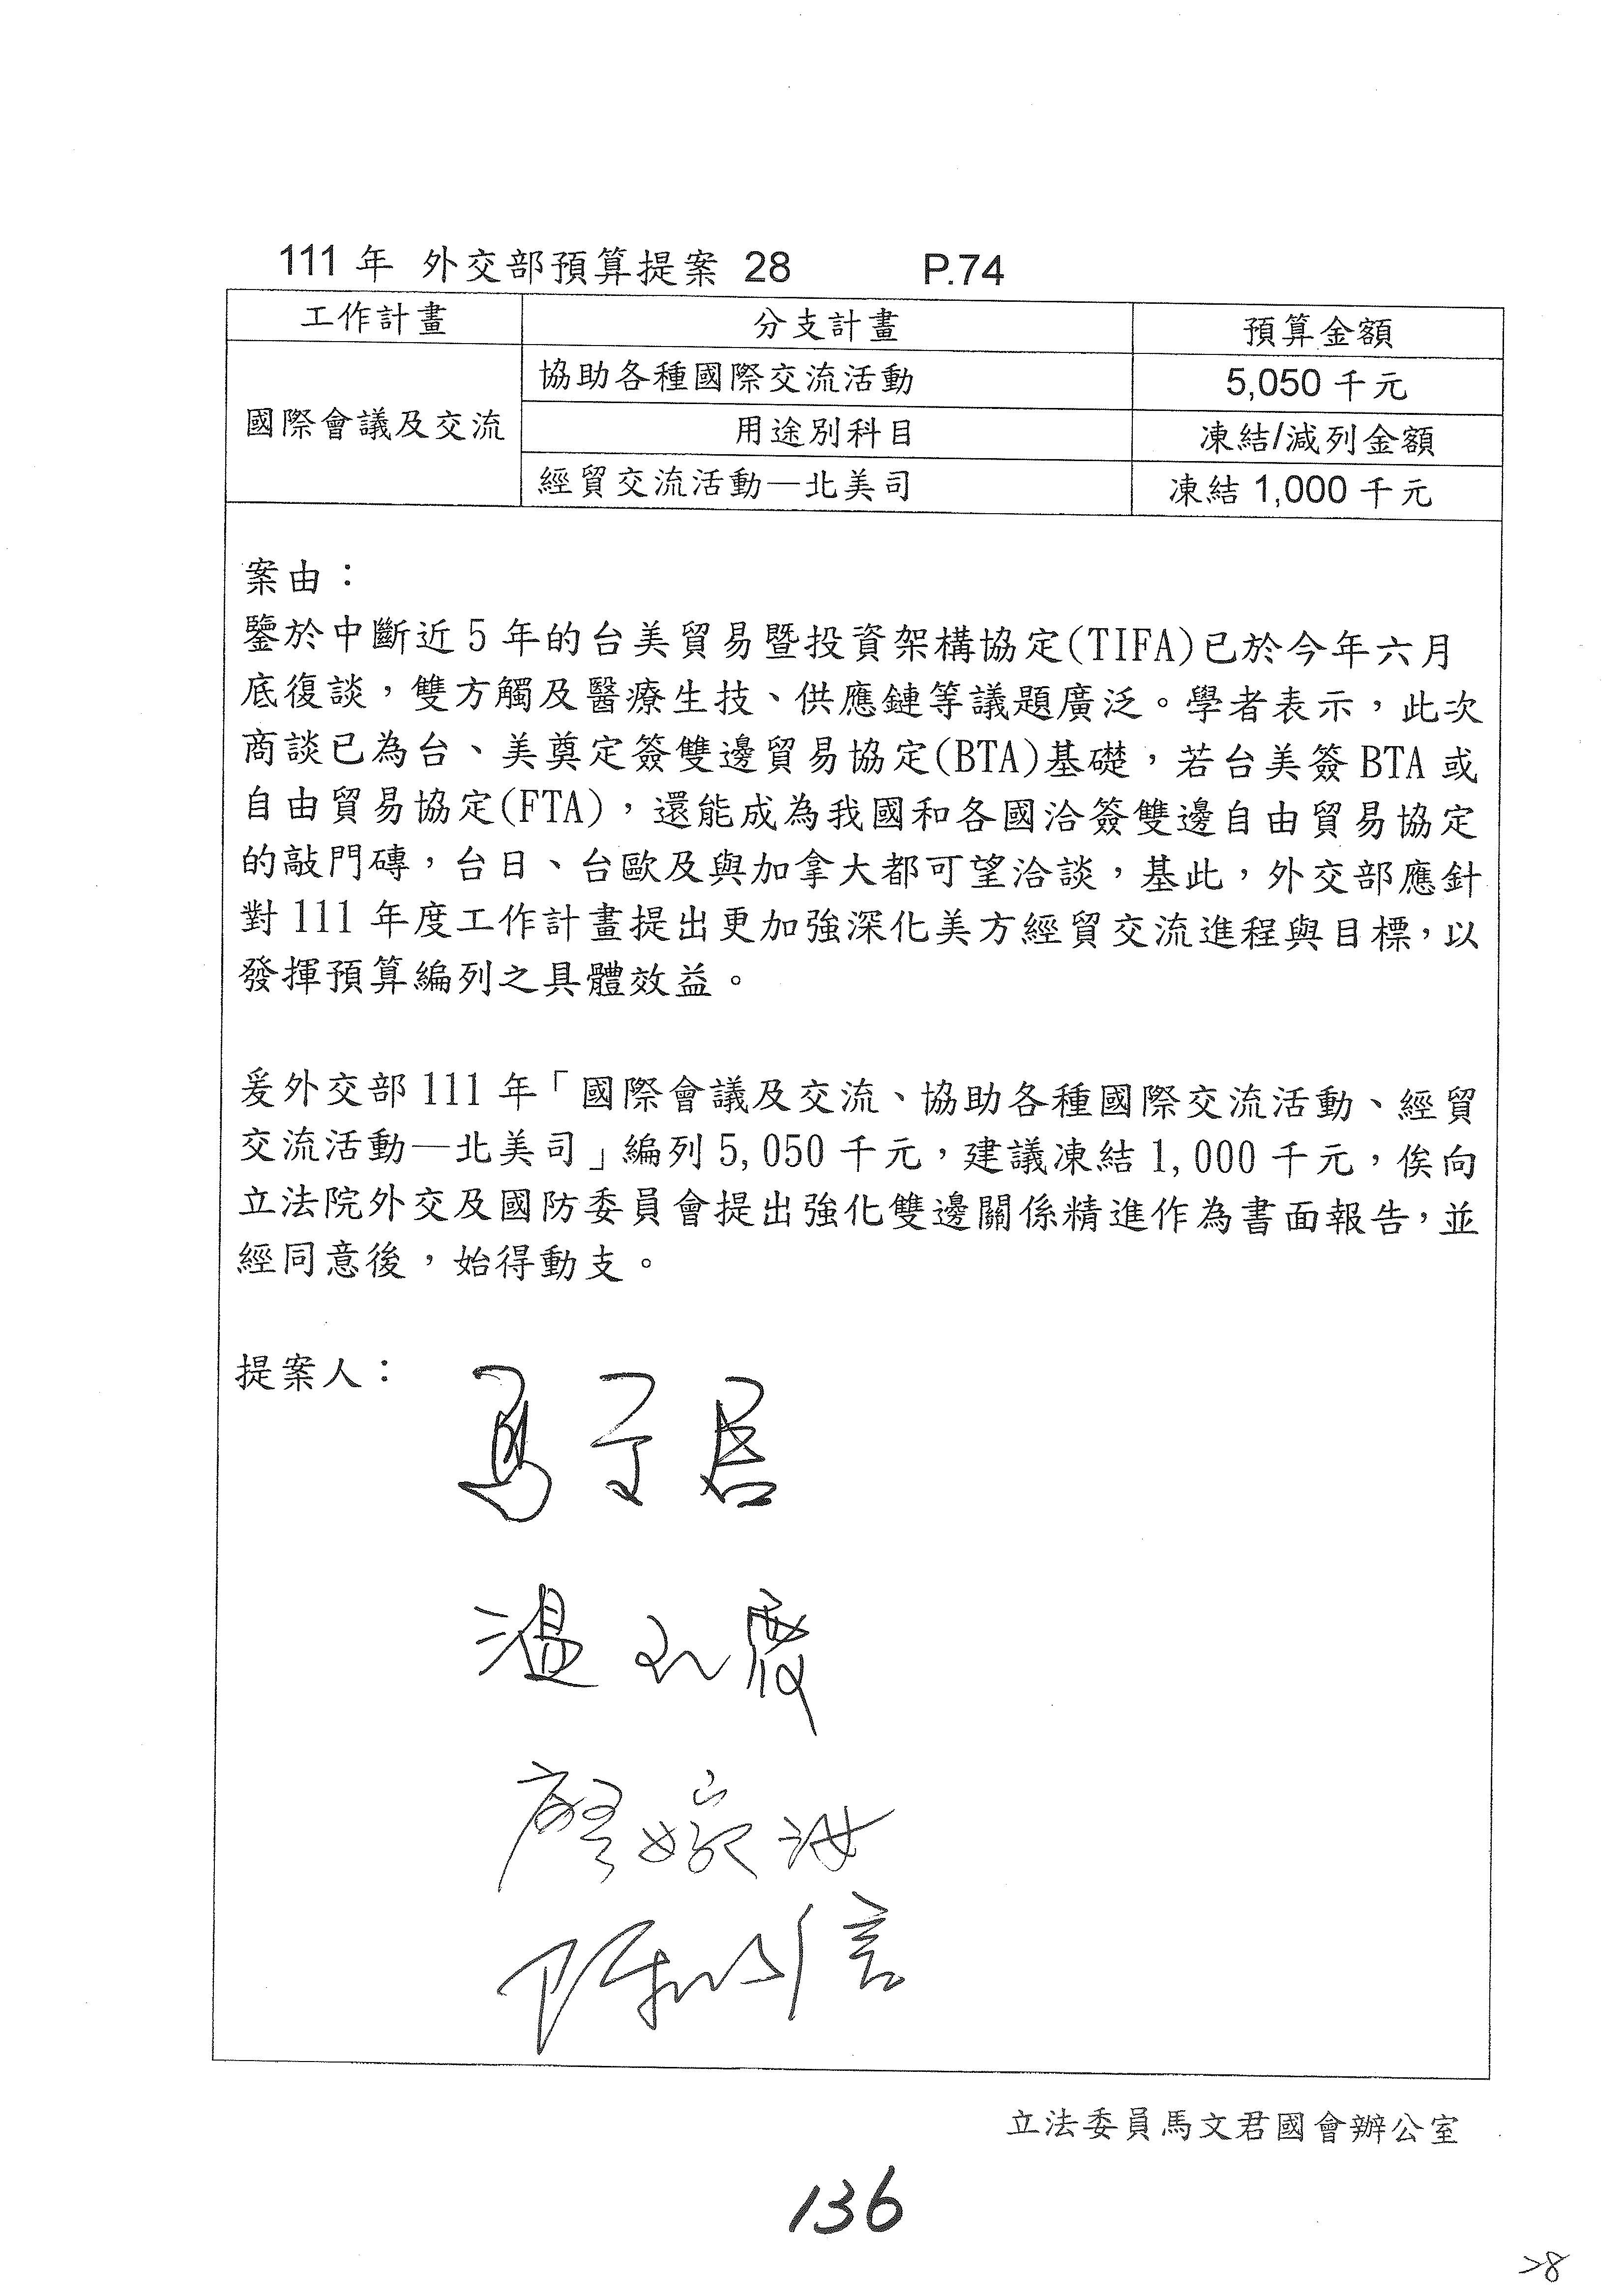 111 年 外交部預算提案 28 P.74
工作計畫 分支計畫 預算金額
國際會議及交流 協助各種國際交流活動 5,050 千元
用途別科目 凍結/減列金額
經貿交流活動—北美司 凍結 1,000 千元
案由：
鑒於中斷近 5 年的台美貿易暨投資架構協定(TIFA)已於今年六月
底復談，雙方觸及醫療生技、供應鏈等議題廣泛。學者表示，此次
商談已為台、美奠定簽雙邊貿易協定(BTA)基礎，若台美簽 BTA 或
自由貿易協定(FTA)，還能成為我國和各國洽簽雙邊自由貿易協定
的敲門磚，台日、台歐及與加拿大都可望洽談，基此，外交部應針
對 111 年度工作計畫提出更加強深化美方經貿交流進程與目標，以
發揮預算編列之具體效益。
爰外交部 111 年「國際會議及交流、協助各種國際交流活動、經貿
交流活動—北美司」編列 5,050 千元，建議凍結 1,000 千元，俟向
立法院外交及國防委員會提出強化雙邊關係精進作為書面報告，並
經同意後，始得動支。
提案人：
馬文君
溫玉霞
廖婉汝
立法委員馬文君國會辦公室
136
28